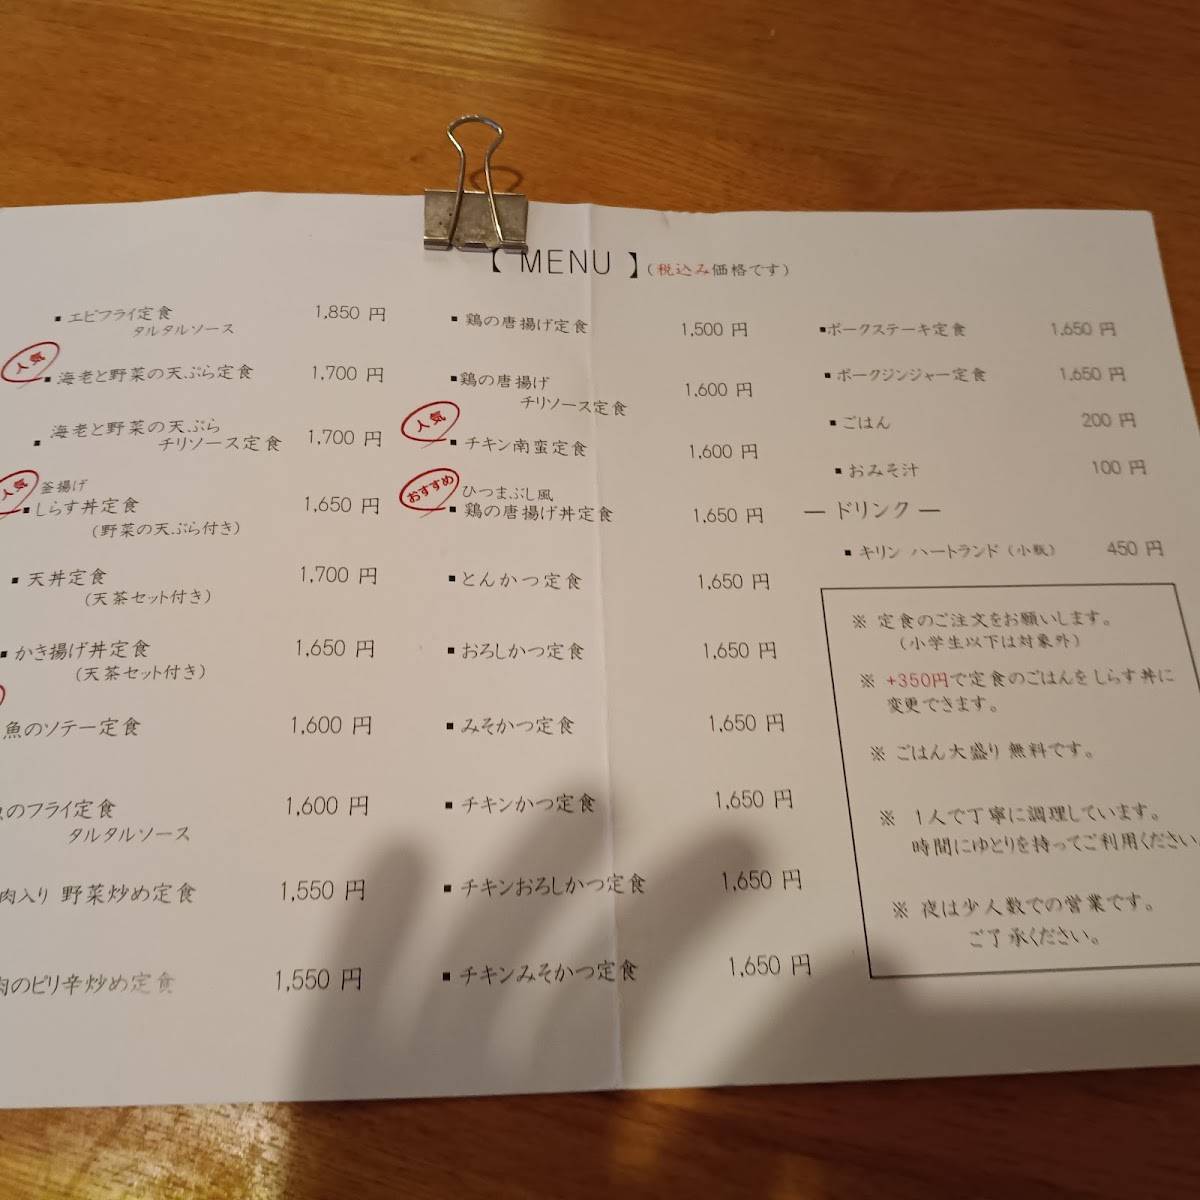 【 MENU 】(税込み価格です)
▪ エビフライ定食 1,850 円
タルタルソース
人気
▪ 海老と野菜の天ぷら定食 1,700 円
▪ 海老と野菜の天ぷら
チリソース定食 1,700 円
人気
釜揚げ
▪ しらす丼定食 1,650 円
(野菜の天ぷら付き)
▪ 天丼定食 1,700 円
(天茶セット付き)
▪ かき揚げ丼定食 1,650 円
(天茶セット付き)
魚のソテー定食 1,600 円
のフライ定食 1,600 円
タルタルソース
肉入り 野菜炒め定食 1,550 円
肉のピリ辛炒め定食 1,550 円
▪ 鶏の唐揚げ定食 1,500 円
▪鶏の唐揚げ
チリソース定食 1,600 円
人気
▪ チキン南蛮定食 1,600 円
おすすめ
ひつまぶし風
▪ 鶏の唐揚げ丼定食 1,650 円
▪ とんかつ定食 1,650 円
▪ おろしかつ定食 1,650 円
▪ みそかつ定食 1,650 円
▪ チキンかつ定食 1,650 円
▪ チキンおろしかつ定食 1,650 円
▪ チキンみそかつ定食 1,650 円
▪ポークステーキ定食 1,650 円
▪ ポークジンジャー定食 1,650 円
▪ ごはん 200 円
▪ おみそ汁 100 円
― ドリンク ―
▪ キリン ハートランド (小瓶) 450 円
※ 定食のご注文をお願いします。
(小学生以下は対象外)
※ +350円で定食のごはんをしらす丼に
変更できます。
※ ごはん大盛り 無料です。
※ 1人で丁寧に調理しています。
時間にゆとりを持ってご利用ください。
※ 夜は少人数での営業です。
ご了承ください。